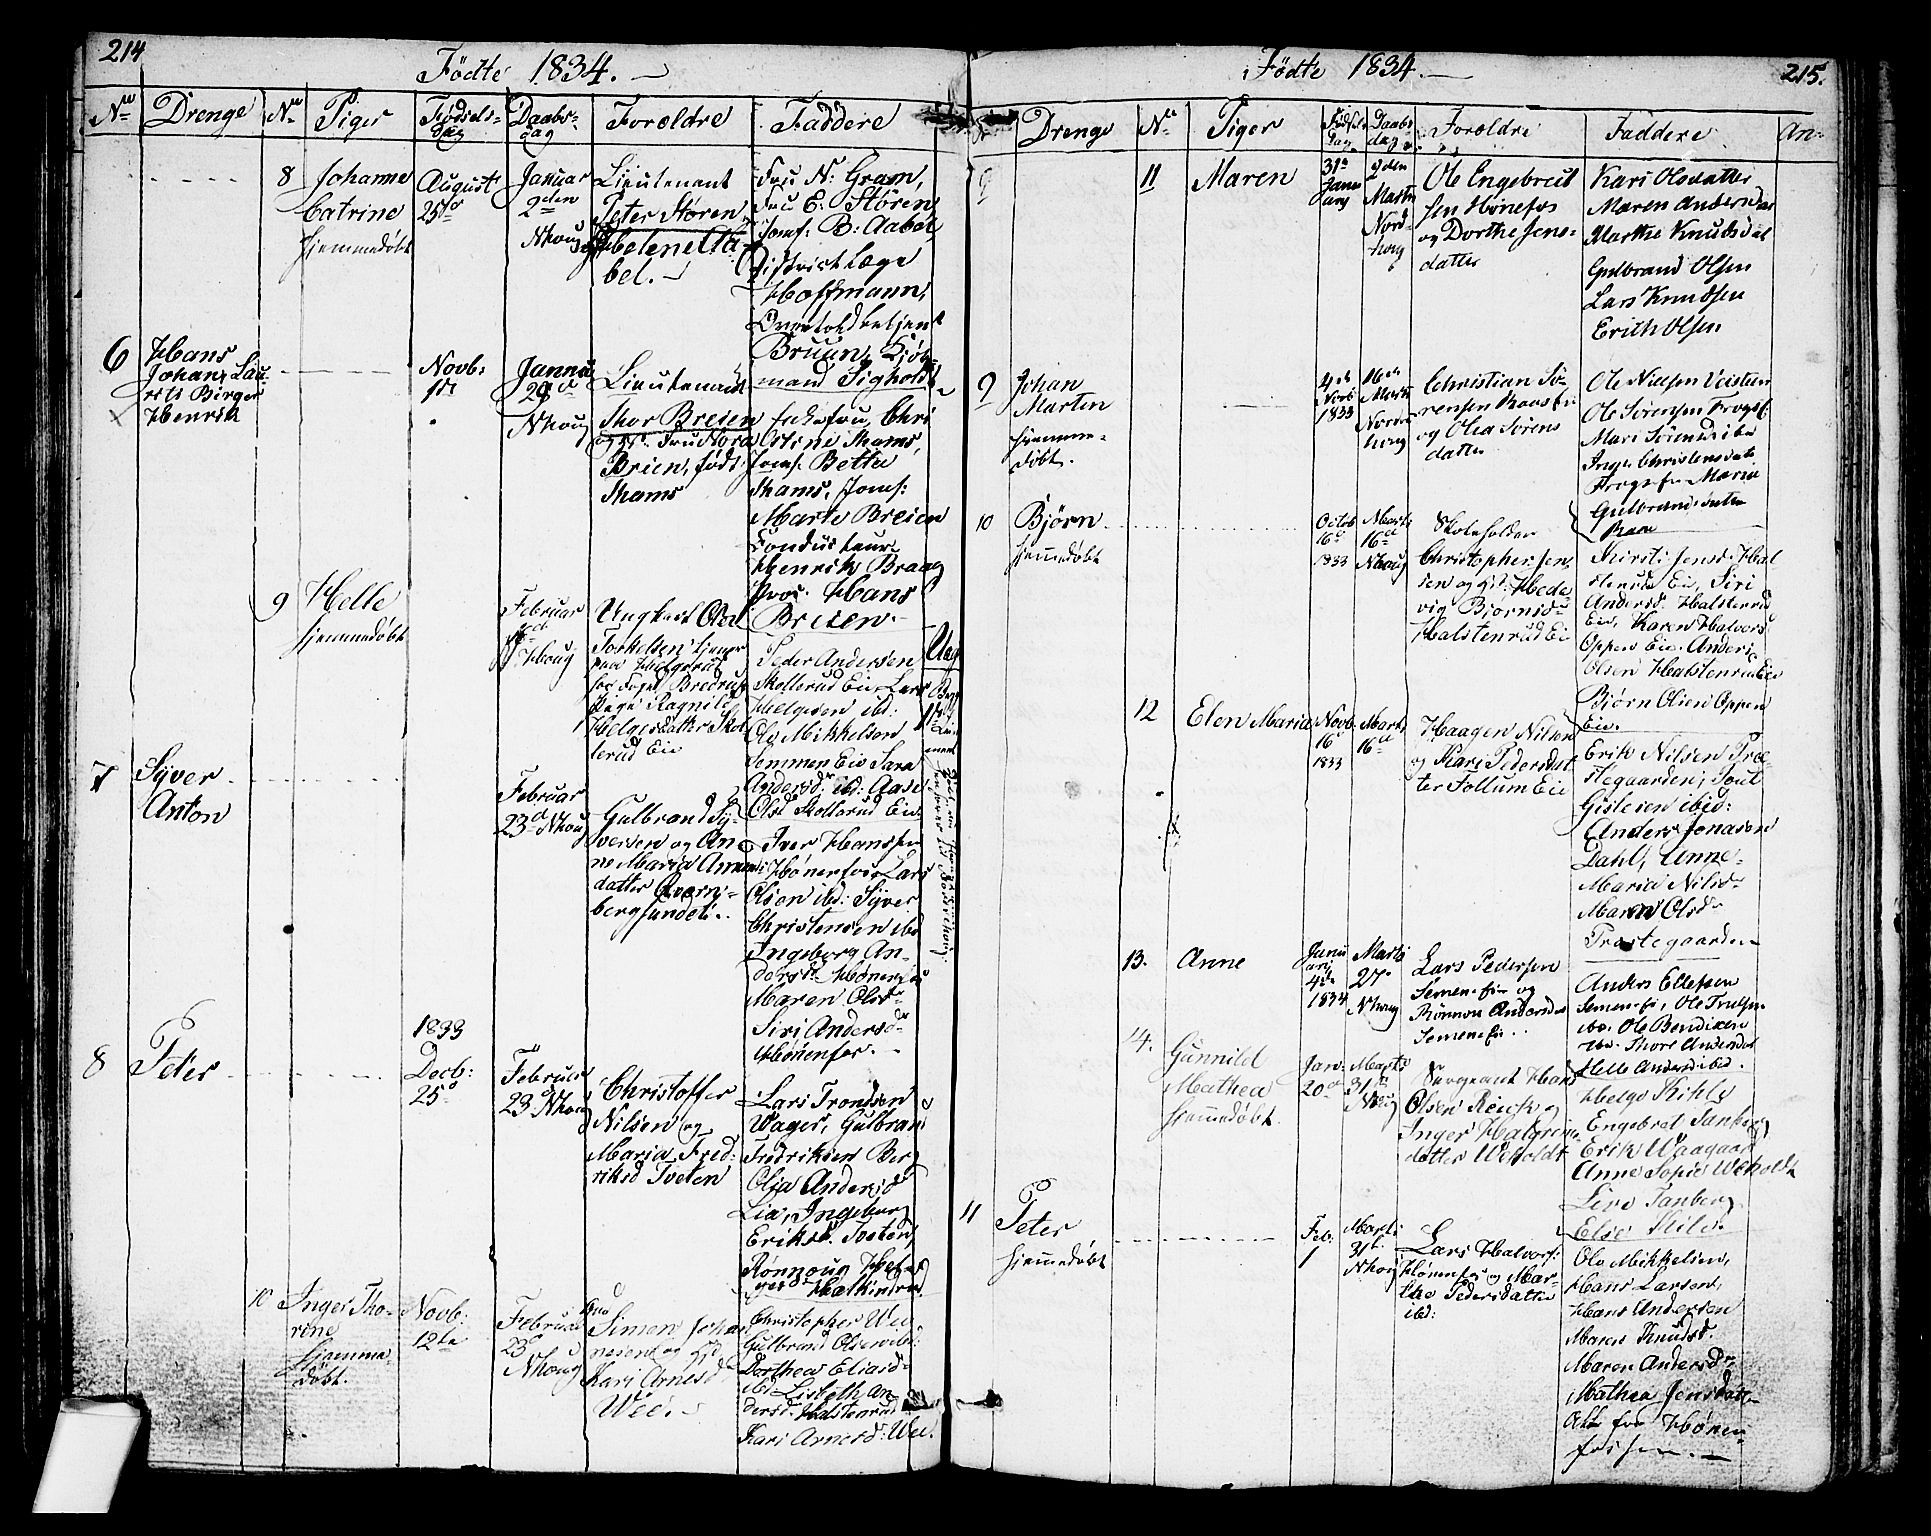 214
Födte 1834.
No Drenge No Piger Födsels-dag Daabs-dag Forældre Faddere
8
Johanne
Catrine
hjemmedøbt
August
25de
Januar
2den
Nhoug
Lieutenant
Peter Støren
og Helene Elisa
bel.
Fru N. Gram,
Fru E. Støren,
Jomf: B: Aabel,
Districtlæge
Hoffmann,
Overtoldbetjent
Bruun, Kjøb-
mand Sigholdt
6
Hans
Johan Lau-
rits Birger
Henrik
Novb:
1ste
Januar
29de
Nhoug
Lieutenant
Thor Breien
og H. Fru Nora
Breien, født
Thams
Enkefru Chri
stine Thams,
Jomf: Betta
Thams, Jomf:
Marte Breien
Conducteur
Henrik Braag
Proc. Hans
Breien.
9
Helle
hjemmedøbt
Februar
Nhoug
Ungkarl Ole
Torkelsen tjener
paa Helgerud
Pige Ragnild
Helgesdatter Skol
lerud Eie
Peder Andersen
Skollerud Eie, Lars
Helgesen ibd:
Ole Mikkelsen
Semmen Eie Sara
Andersdr ibd: Aase
Olsdr Skollerud Eie
7
Syver
Anton
Februar
23d Nhoug
Gulbrand Sy-
versen og An-
ne Maria Annen:
datter Qvern-
bergsundet.
Iver Hanssen
Hønefos, Lars
Olsen ibd: Syver
Christensen ibd
Ingeborg An-
dersdr Hønefos
Maren Olsdr
Siri Andersdr
Hønenfos.
8
Peter
1833
Decb:
25de
Februar
23d Nhoug
Christoffer
Nilsen og
Maria Fred-
riksd Tveten
Lars Trondsen
Wager, Gulbrand
Fredriksen Berg
Olia Andersd
Lia, Ingeborg
Eriksd. Tveten,
Ronnoug Hel-
10
Inger Tho-
rine
Hjemme-
døbt.
Novb:
12te
Februar
23d
Nhoug
Simen Johan
nesen og H.
Kari Arnesd
Wee.
Christopher Wee
Gulbrand Olsen ibd:
Dorthea Eliasdr
ibd Lisbeth An-
dersd. Halstenrud
Kari Arnesd: Wee.
Födte 1834.
215.
No Drenge No Piger Födsels Dag Daabs dag Forældre Faddere An-
11
Maren
31te
Janu
ary
2den
Marts
Nord-
houg
Ole Engebret
sen Hønefos
og Dorthe Jens-
datter
Kari Olsdatter
Maren Andersdat
Marthe Knudsdat
Gulbrand Olsen
Lars Knudsen
Erich Olsen
9
Johan
Marten
hjemme-
døbt.
4de
Novb
1833
16de
Marts
Nord-
houg
Christian Sø-
rensen
og Olea Sørens
datter
Ole Nielsen Veisteen
Ole Sørensen
Mari Sørensd ibd
Inger Christensdat
Maria
Gulbrandsdatter
10
Björn
hjemmedøbt
Octob
16d
1833
Marts
16d
Nhoug
Skoleholder
Christopher Jen-
sen og H: Hede-
vig Björnsd:
Halstenrud Eie
Kirsti Jensd: Hal
stenrud Eie, Siri
Andersd. Halstenrud
Eie, Karen Halvors
Oppen Eie, Anders
Olsen Halstenrud Eie
Björn Olsen Oppen
Eie.
12
Elen Maria
Novb
16d
1833
Marts
16d
Haagen Nilsen
og Kari Pedersdat
ter Follum Eie
Erik Nilsen Præ-
stegaarden, Poul
Gislesen ibid:
Anders Jonasen
Dahl, Anne
Maria Nilsd
Maren Olsdr
Præstegaarden
13.
Anne
Janu
ari
4de
1834
Marts
27
Nhoug
Lars Pedersen
Semen-eie og
Rønnou Andersdat
Semen Eie.
Anders Ellefsen
Semen-ei, Ole Truls
ibd. Ole Bendiksen
ibd. Thore Andersdat
Helle Andersd ibid.
14.
Gunnild
Mathea
hjemmedøbt.
Jan:
20d
Marts
31te
Nhoug
Sergeant Hans
Olsen og
Inger Halgrims
datter Weholdt
Helge Kihle
Engebret Tanberg
Erik Waagaar
Anne Sopie Weholdt
Live Tanberg
Else Kile.
11
Peter
hjemmedøbt
Feb:
1
Marts
31te
Nhoug
Lars Halvors:
Hønenfos og Mar-
the Pedersdatter
ibd:
Ole Mikkelsen,
Hans Larsen,
Hans Andersen
Maren Knudsd.
Maren Andersdr
Mathea Jensdat-
alle fra Hønen-
fossen.